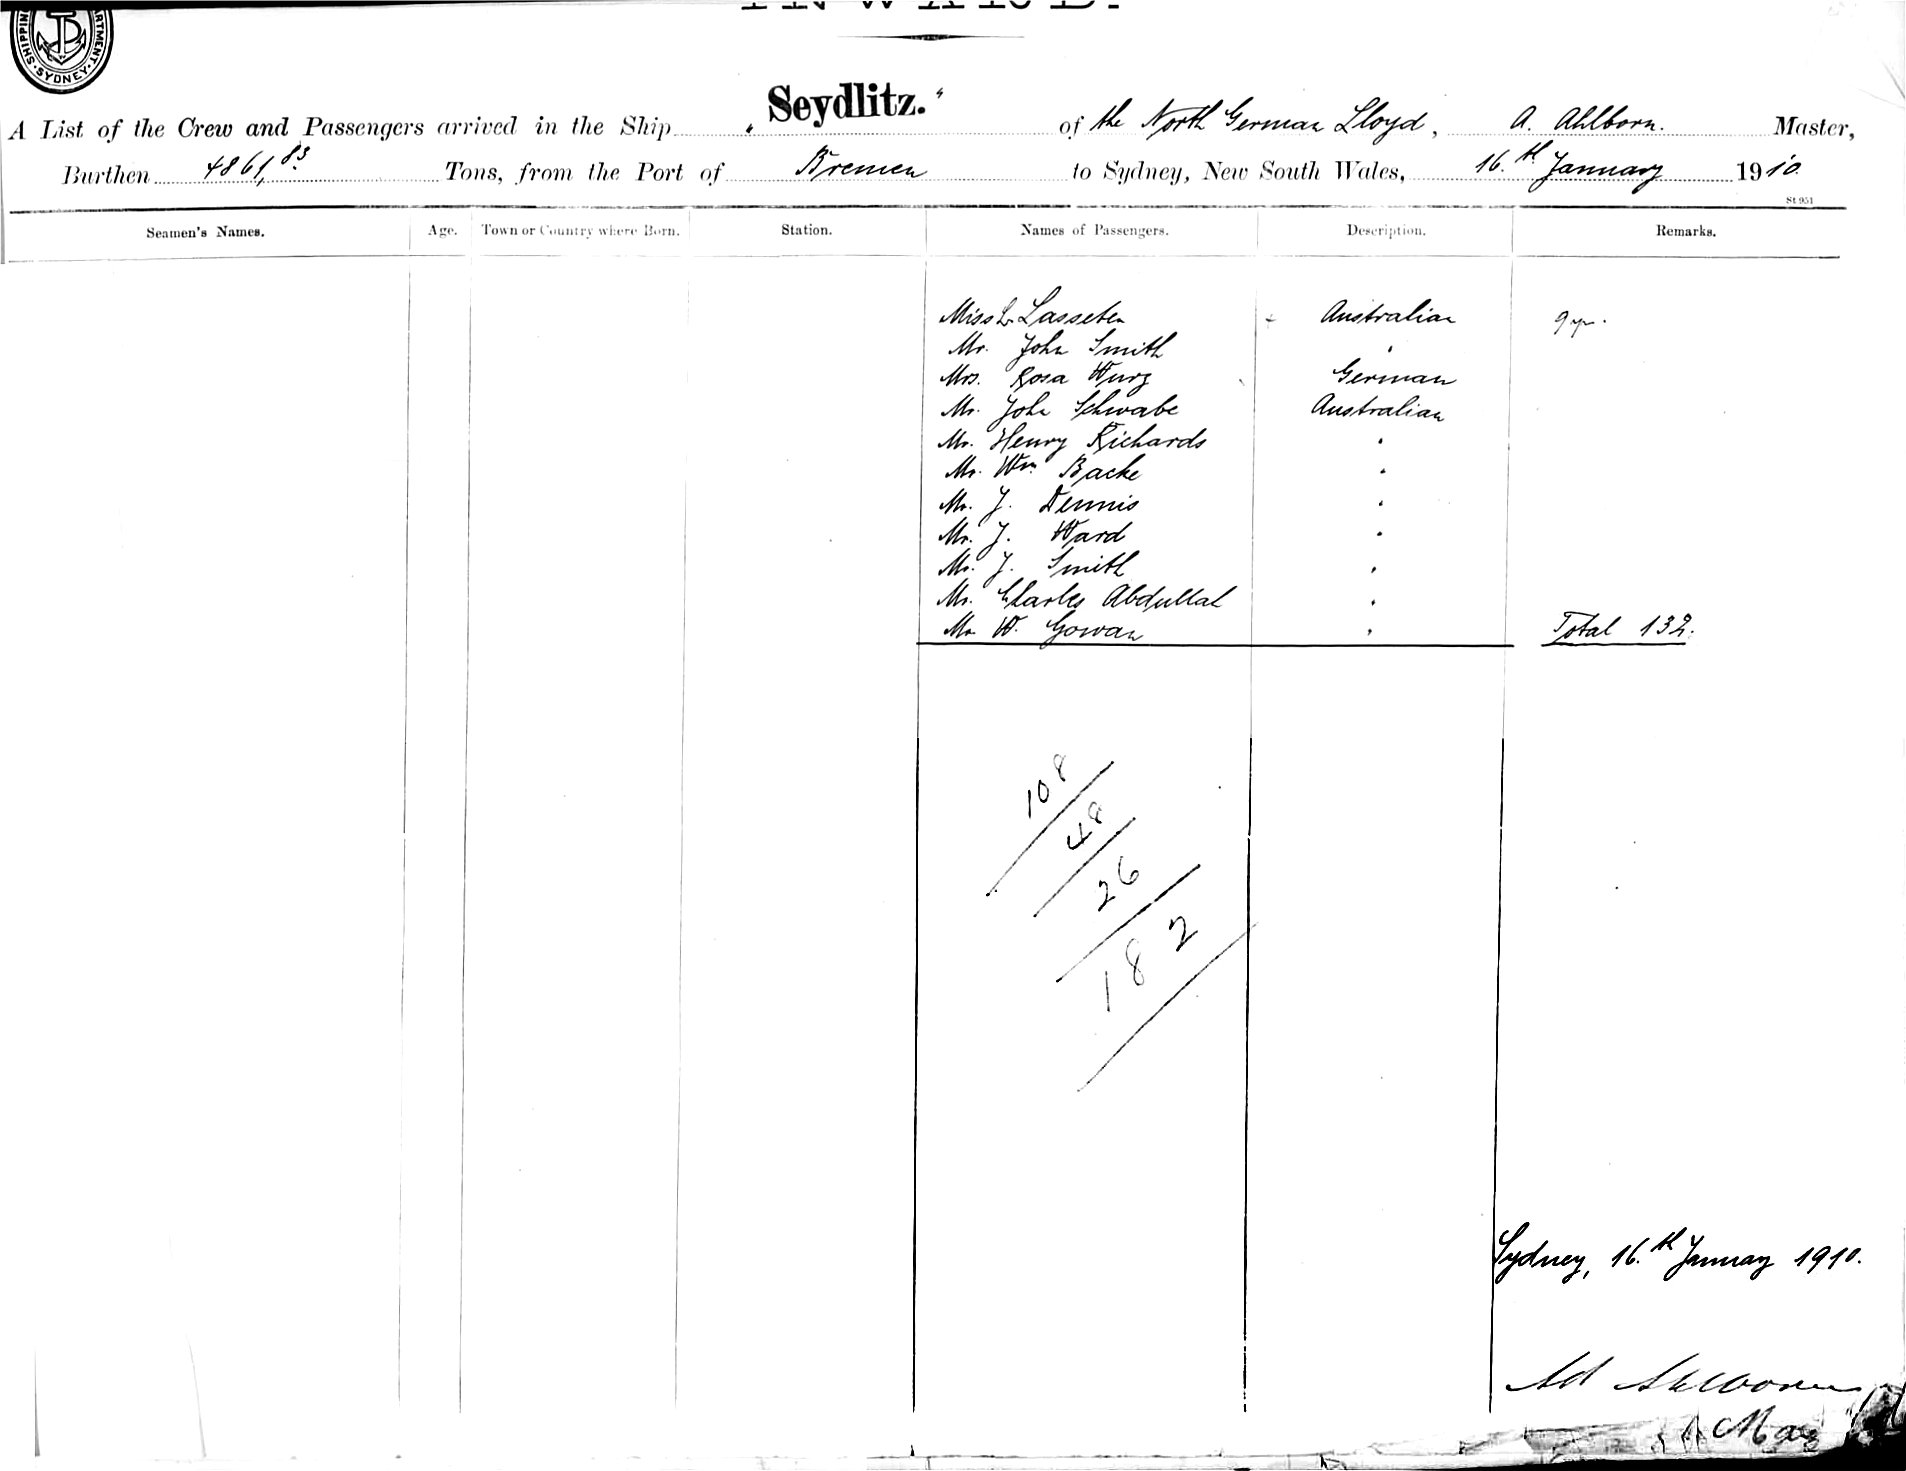 INWARD.
SHIPPING DEPARTMENT SYDNEY
"Seydlitz."
A List of the Crew and Passengers arrived in the Ship of the North German Lloyd, A. Ahlborn. Master,
Burthen 4861,83 Tons, from the Port of Bremen to Sydney, New South Wales, 16.th January 1910.
St 951
Seamen's Names. Age. Town or Country where Born. Station. Names of Passengers. Description. Remarks.
Miss L. Lasseter Australian 9 yr.
Mr. John Smith "
Mrs. Rosa Wurz German
Mr. John Schwabe Australian
Mr. Henry Richards "
Mr. Wm. Backe "
Mr. J. Dennis "
Mr. J. Ward "
Mr. J. Smith "
Mr. Charles Abdullah "
Mr. W. Gowan " Total 132.
108
48
26
182
Sydney, 16.th January 1910.
Ad Ahlborn